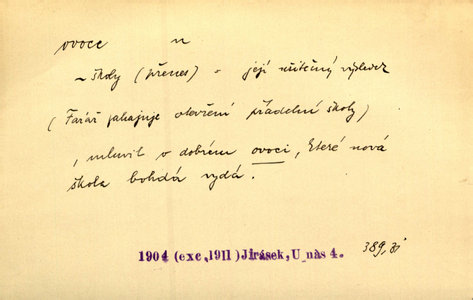 ovoce n
~ školy (přenes) = její užitečný výsledek
(Farář zahajuje otevření přádelní školy)
, mluvil o dobrém ovoci, které nová
škola bohdá vydá.
1904 (exc. 1911) Jirásek, U nás 4. 389,